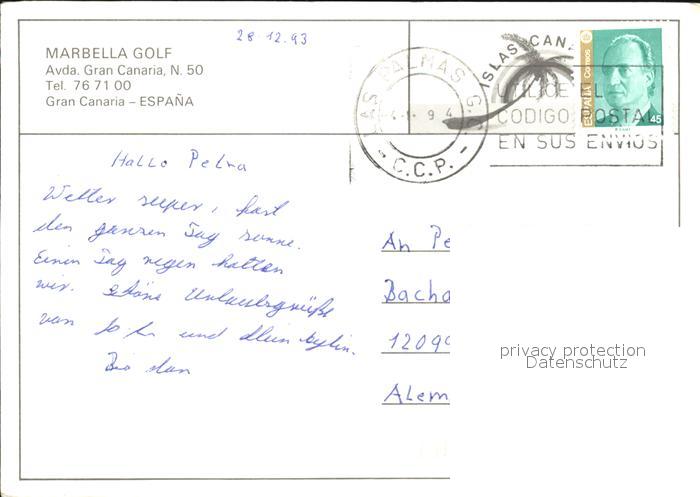 28.12.93
MARBELLA GOLF
Avda. Gran Canaria, N. 50
Tel. 76 71 00
Gran Canaria – ESPAÑA
LAS PALMAS G.C.
4-1-94
- C.C.P. -
ISLAS CAN
UTILICE EL
CODIGO POSTAL
EN SUS ENVIOS
ESPAÑA Correos
45
Hallo Petra
Wetter super, fast
den ganzen Tag sonne.
Einen Tag regen hatten
wir. schöne Urlaubsgrüße
von und
Bis dan
An Pe
Bacha
1209
Alem
privacy protection
Datenschutz